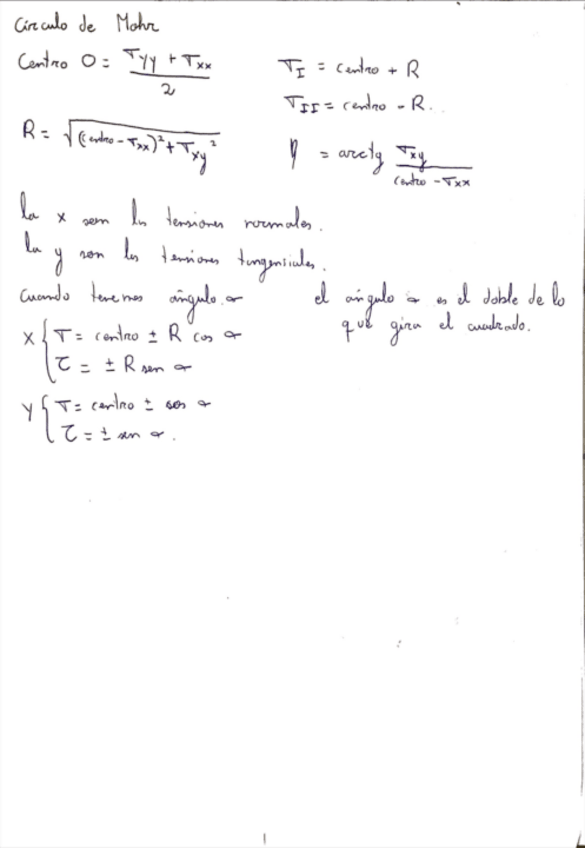 Círculo de Mohr
Centro O = (σyy + σxx) / 2
σI = centro + R
σII = centro - R.
R = √((centro - σxx)² + σxy²)
φ = arctg σxy / (centro - σxx)
la x son ls tensiones normales.
la y son las tensiones tangenciales.
Cuando tenemos ángulo α
el ángulo α es el doble de lo
que gira el cuadrado.
X { σ = centro ± R cos α
τ = ± R sen α
Y { σ = centro ± cos α
τ = ± sen α.
1